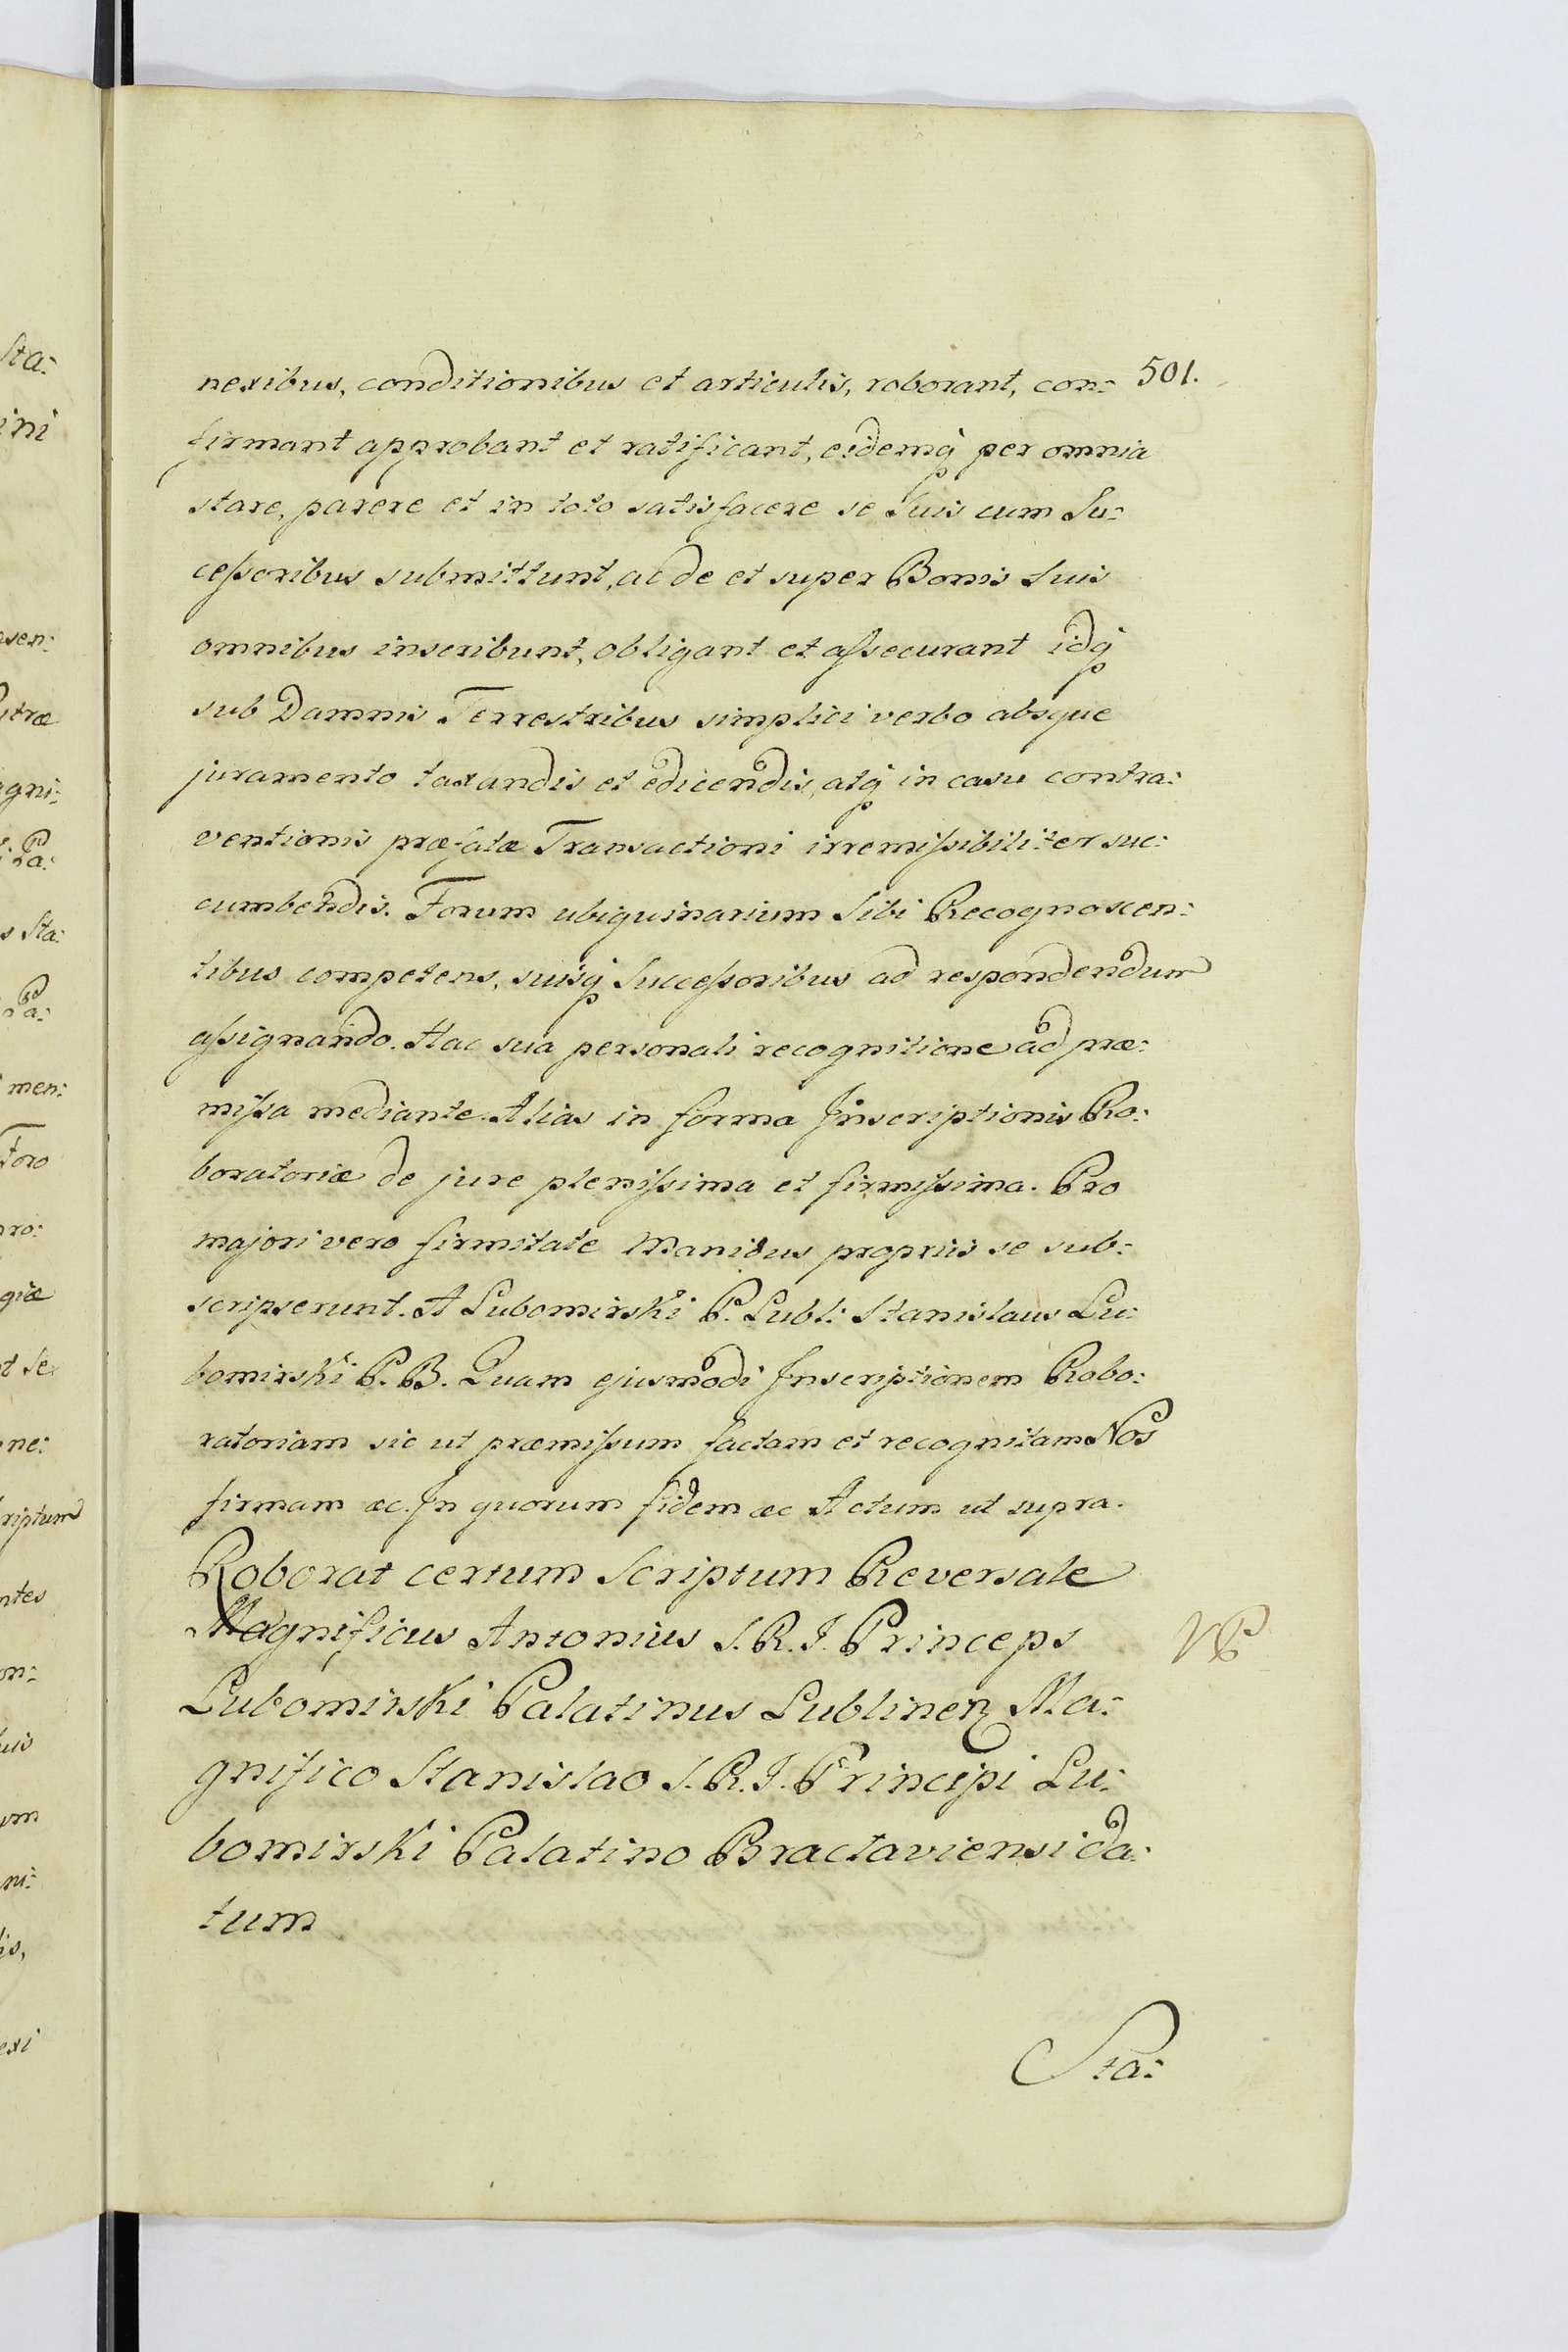 501.
nexibus, conditionibus et articulis, roborant, con:
firmant approbant et ratificant, eidemq́ per omnia
stare, parere et in toto satisfacere se Suis cum Su:
ceſsoribus submittunt, ac de et super Bonis Suis
omnibus inscribunt, obligant et aſsecurant idq́
sub Damnis Terrestribus simplici verbo absque
juramento taxandis et edicendis, atq́ in casu contra:
ventionis præfatæ Transactioni irremiſsibiliter suc:
cumbendis. Forum ubiquinarium Sibi Recognoscen:
tibus competens, suisq́ Succeſsoribus ad respondendum
aſsignando. Hac sua personali recognitione ad præ:
miſsa mediante. Alias in forma Inscriptionis Ro:
boratoriæ de jure pleniſsima et firmiſsima. Pro
majori vero firmitate Manibus propriis se sub:
scripserunt. A Lubomirski P. Lubl: Stanislaus Lu:
bomirski P. B. Quam ejusmodi Inscriptionem Robo:
ratoriam sic ut præmiſsum factam et recognitam Nos
firmam æc. In quorum fidem æc Actum ut supra.
Roborat certum Scriptum Reversale
Magnificus Antonius S. R. I. Princeps
Lubomirski Palatinus Lublinen Ma:
gnifico Stanislao S. R. I. Principi Lu:
bomirski Palatino Bractaviensi da:
tum
Sta:
sta:
ini
men:
Toro
giæ
ne:
riptum
ntes